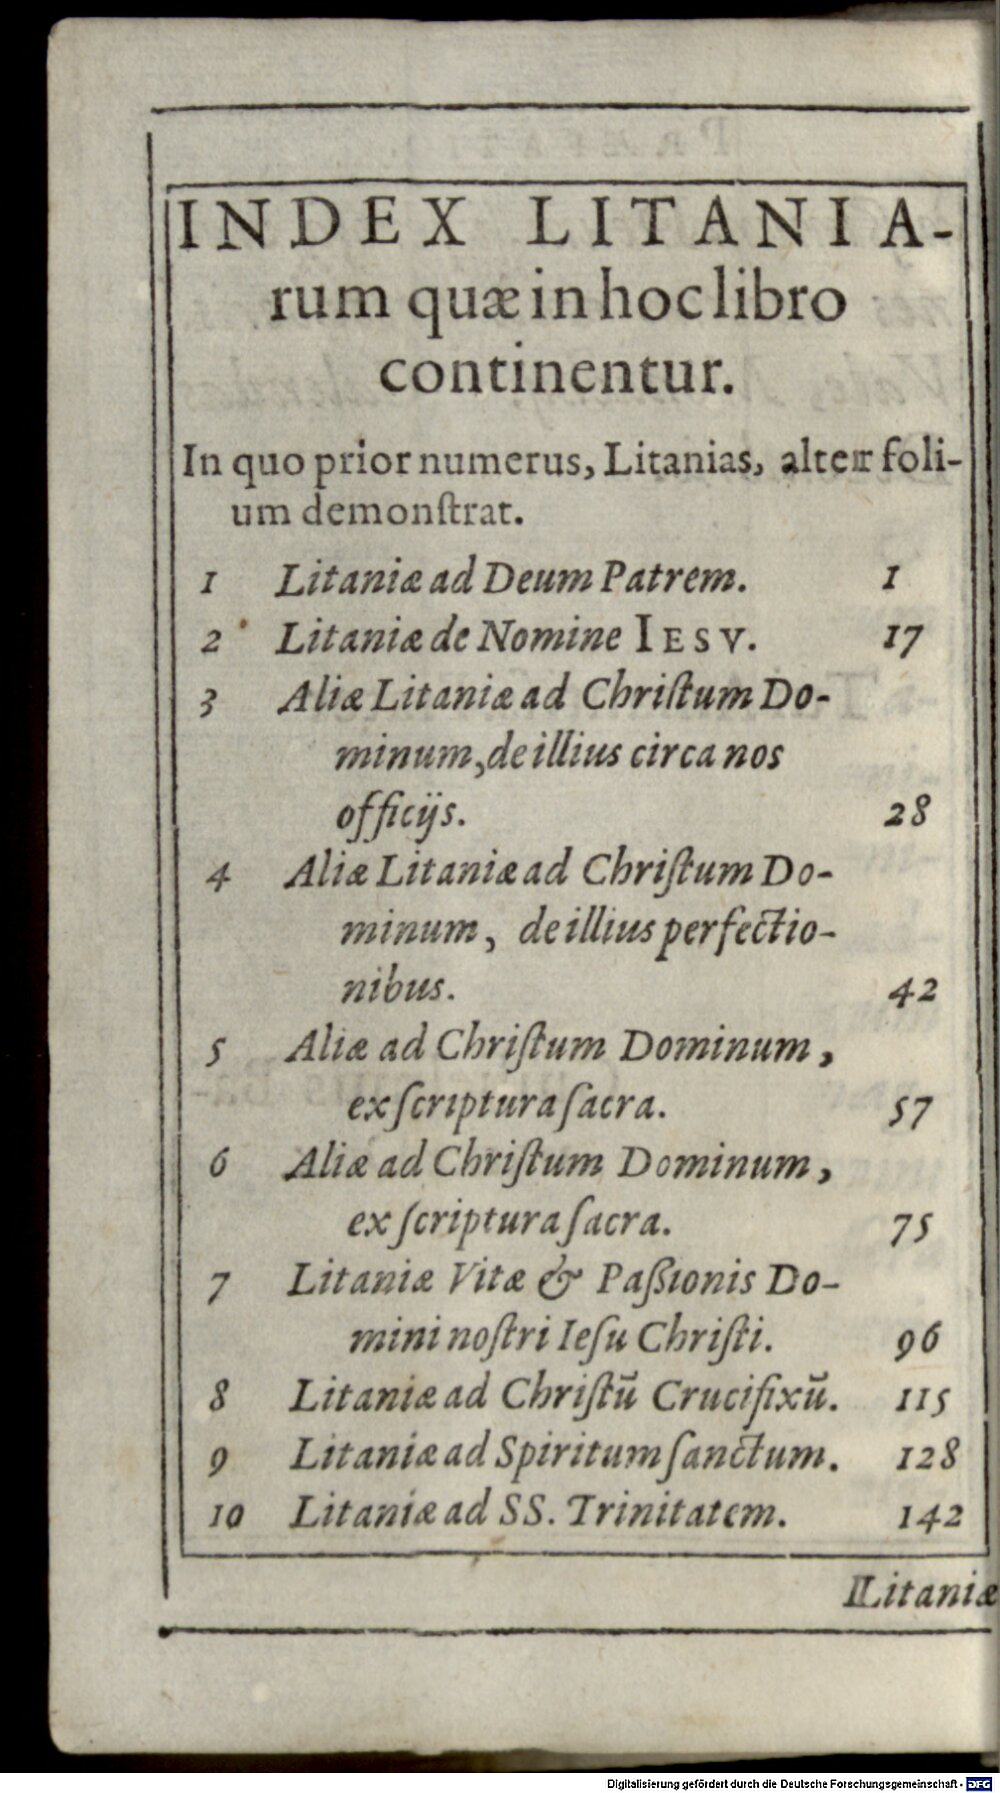 INDEX LITANIA-
rum quæ in hoc libro
continentur.
In quo prior numerus, Litanias, alter foli-
um demonſtrat.
1 Litaniæ ad Deum Patrem. 1
2 Litaniæ de Nomine IESV. 17
3 Aliæ Litaniæ ad Chriſtum Do-
minum, de illius circa nos
officijs. 28
4 Aliæ Litaniæ ad Chriſtum Do-
minum, de illius perfectio-
nibus. 42
5 Aliæ ad Chriſtum Dominum,
ex ſcriptura ſacra. 57
6 Aliæ ad Chriſtum Dominum,
ex ſcriptura ſacra. 75
7 Litaniæ Vitæ & Paßionis Do-
mini noſtri Ieſu Chriſti. 96
8 Litaniæ ad Chriſtū Crucifixū. 115
9 Litaniæ ad Spiritum ſanctum. 128
10 Litaniæ ad SS. Trinitatem. 142
Litaniæ
Digitalisierung gefördert durch die Deutsche Forschungsgemeinschaft - DFG